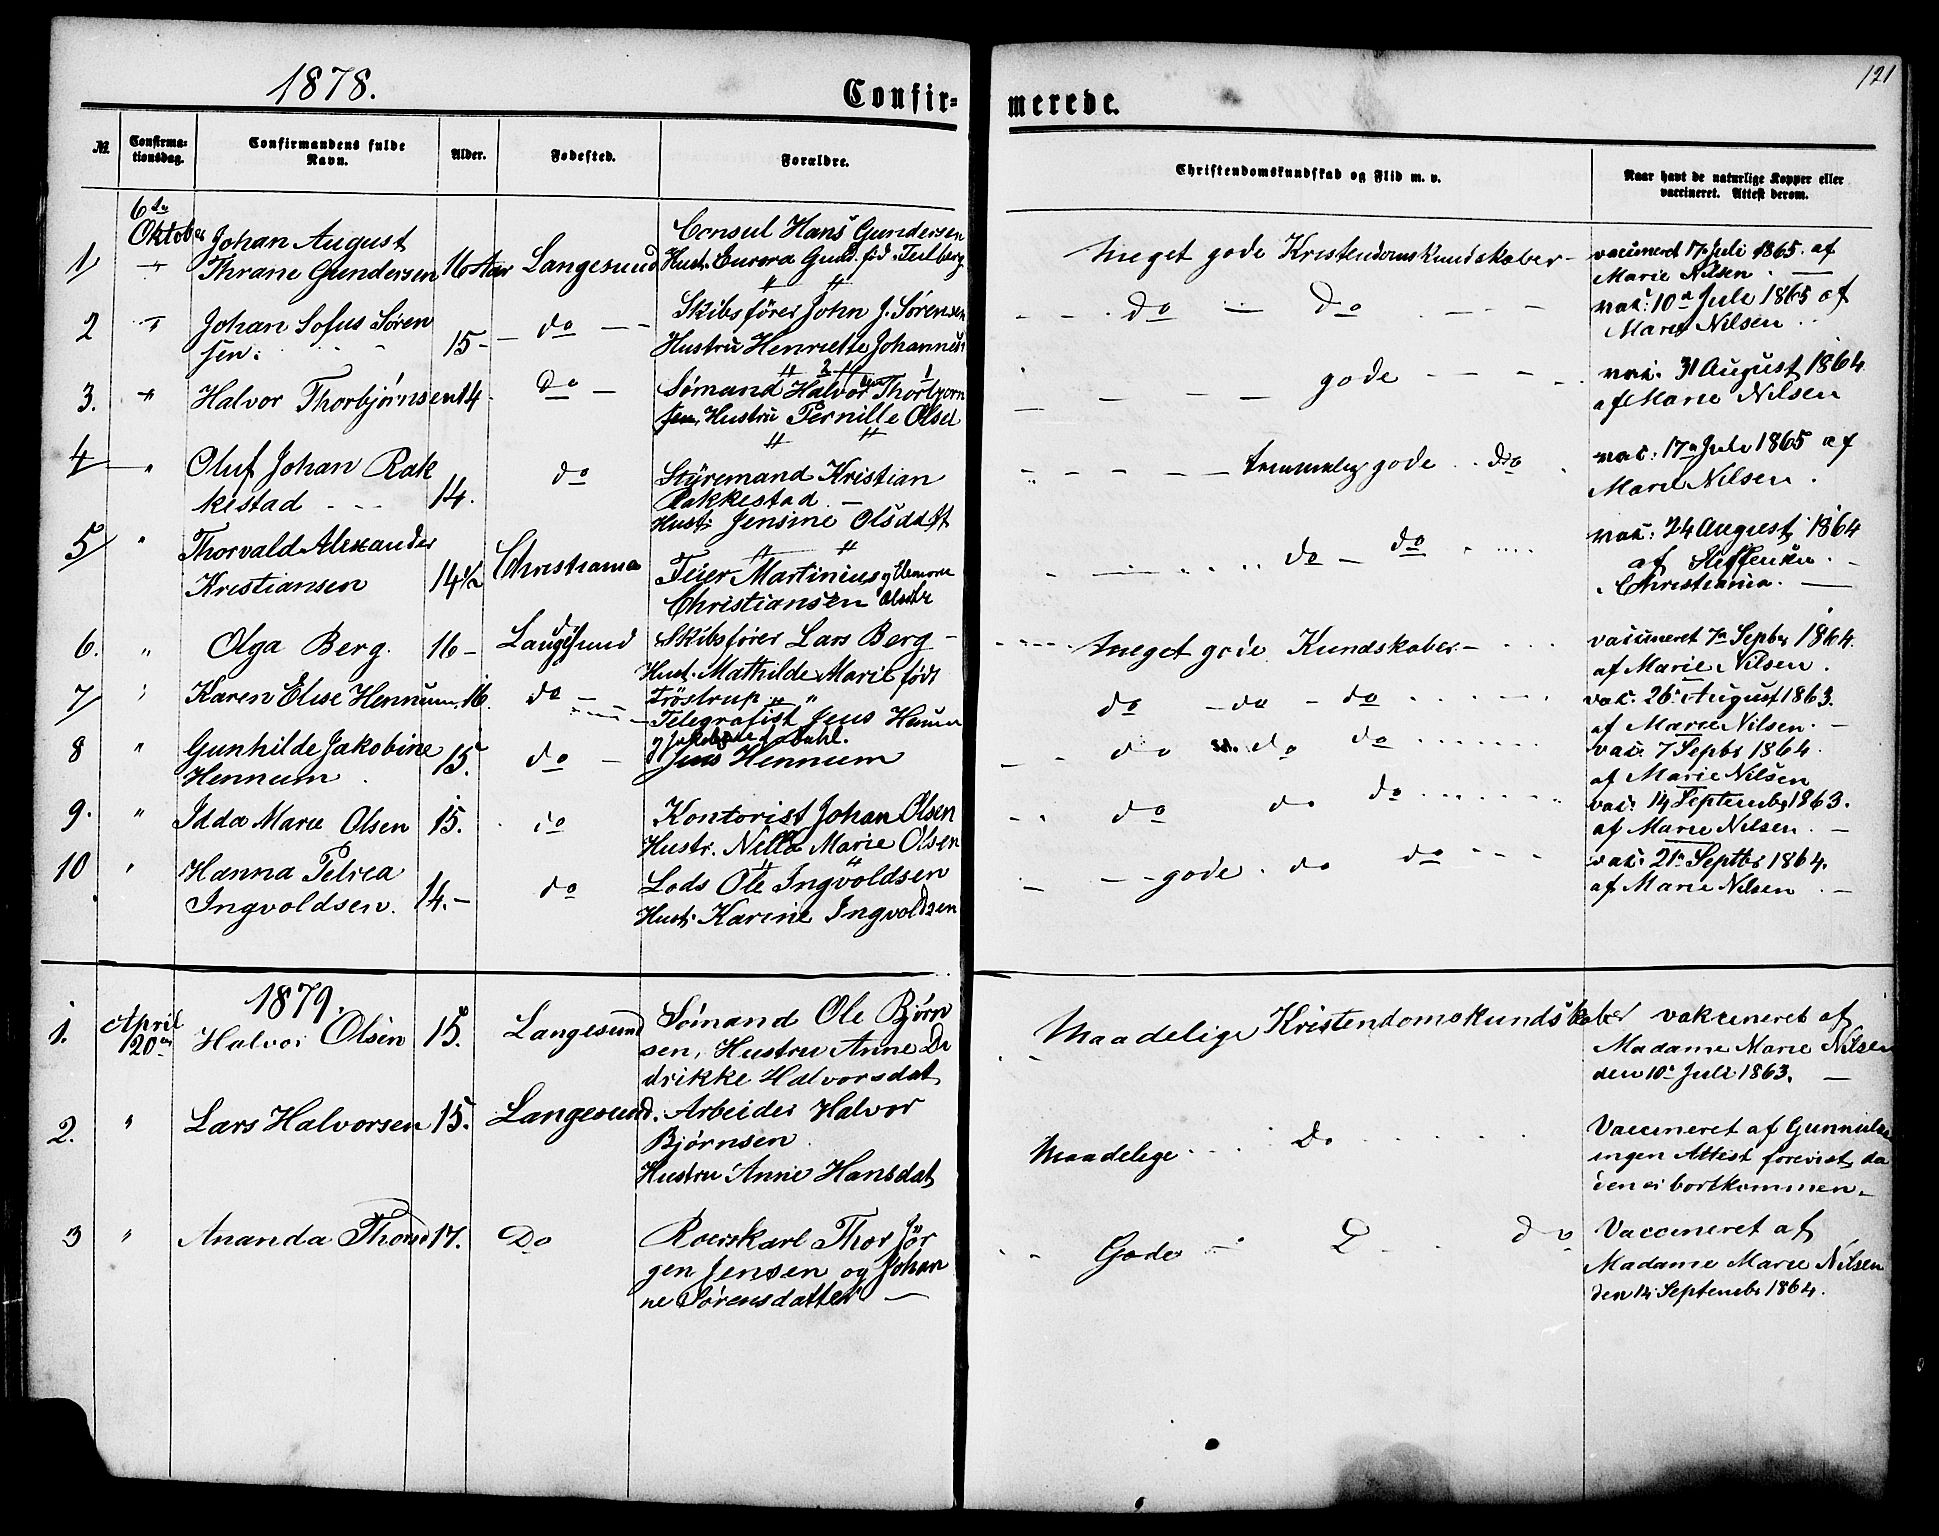 1878. Confir- merede. 121
№ Confirma-tionsdag. Confirmandens fulde Navn. Alder. Fødested. Forældre. Christendomskundskab og Flid m. v. Naar havt de naturlige Kopper eller vaccineret. Attest derom.
6te
Oktober Johan August Consul Hans Gundersen
1/ " Thrane Gundersen 16 Aar Langesund Hust. Gund. fød Meget gode Kristendomskundskaber - vaccineret 17 Juli 1865 af
Marie Nilsen.
2 " Johan Sofus Søren 15 - do - Skibsfører John J. Sørensen do - Do vac: 10 Juli 1865 af
sen. Hustru Henriette Marie Nilsen
3. " Halvor Thorbjørnsen 14 Do - Sømand Halvor Thorbjørn gode vac. 31 August 1864
sen, Hustru Pernille Olsd af Marie Nilsen
4 " Oluf Johan Rak 14. do Styremand Kristian gode do vac: 17 Juli 1865 af
kestad Rakkestad - Marie Nilsen.
Hust: Jensine Olsdatt
5/ " Thorvald Alexander 14½ Christiania do - do vac: 24 August 1864
Kristiansen Martinius af
Christiansen Christiania.
6. " Olga Berg. 16 - Langesund Skibsfører Lars Berg - Meget gode Kundskaber - vaccineret 7 Septbr 1864
Hust. Mathilde Marie født af Marie Nilsen.
7/ " Karen Elise Hennum. 16. do - Tröstrup do - do - do vac. 26 August 1863.
Telegrafist Jens Hennum af Marie Nilsen.
8 " Gunhilde Jakobine 15. do - do do do vac. 7 Septbr 1864.
Hennum Jens Hennum af Marie Nilsen
9. " Idda Marie Olsen 15. do Kontorist Johan Olsen do do do vac: 14 Septembr 1863.
Hustr. Nella Marie Olsen af Marie Nilsen.
10 " Hanna Petrea 14. - do Lods Ole Ingvoldsen gode. do do vac: 21 Septbr 1864.
Ingvoldsen. Hust: Karine Ingvoldsen af Marie Nilsen
1879.
1. April 20 Halvor Olsen 15. Langesund Sømand Ole Bjørn Maadelige Kristendomskundskaber vakcineret af
sen, Hustru Anne Di Madame Marie Nilsen
drikke Halvorsdat den 10 Juli 1863.
2. " Lars Halvorsen 15. Langesund. Arbeider Halvor Maadelige Do Vaccineret af
Bjørnsen ingen Attest forevist, da
Hustru Anne Hansdat den er bortkommen.
3 " Ananda 17. Do Roerskarl Thor Jør Gode do Vaccineret af
gen Jensen og Johan Madame Marie Nilsen
ne Sørensdatter den 14 Septembr 1864.